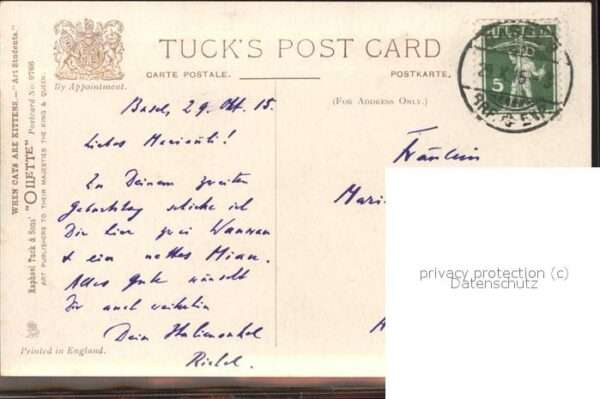 WHEN CATS ARE KITTENS.—"Art Students."
Raphael Tuck & Sons' "OILETTE" Postcard No. 9786
ART PUBLISHERS TO THEIR MAJESTIES THE KING & QUEEN.
By Appointment.
TUCK'S POST CARD
CARTE POSTALE.
POSTKARTE.
(FOR ADDRESS ONLY.)
HELVETIA
5
Basel, 29. Okt. 15.
Liebes
Zu Deinem zweiten
Geburtstag schicke ich
Dir hier zwei Wauwau
& ein nettes Miau.
Alles Gute wünscht
Dir auch weiterhin
Dein
Fräulein
Printed in England.
privacy protection (c)
Datenschutz